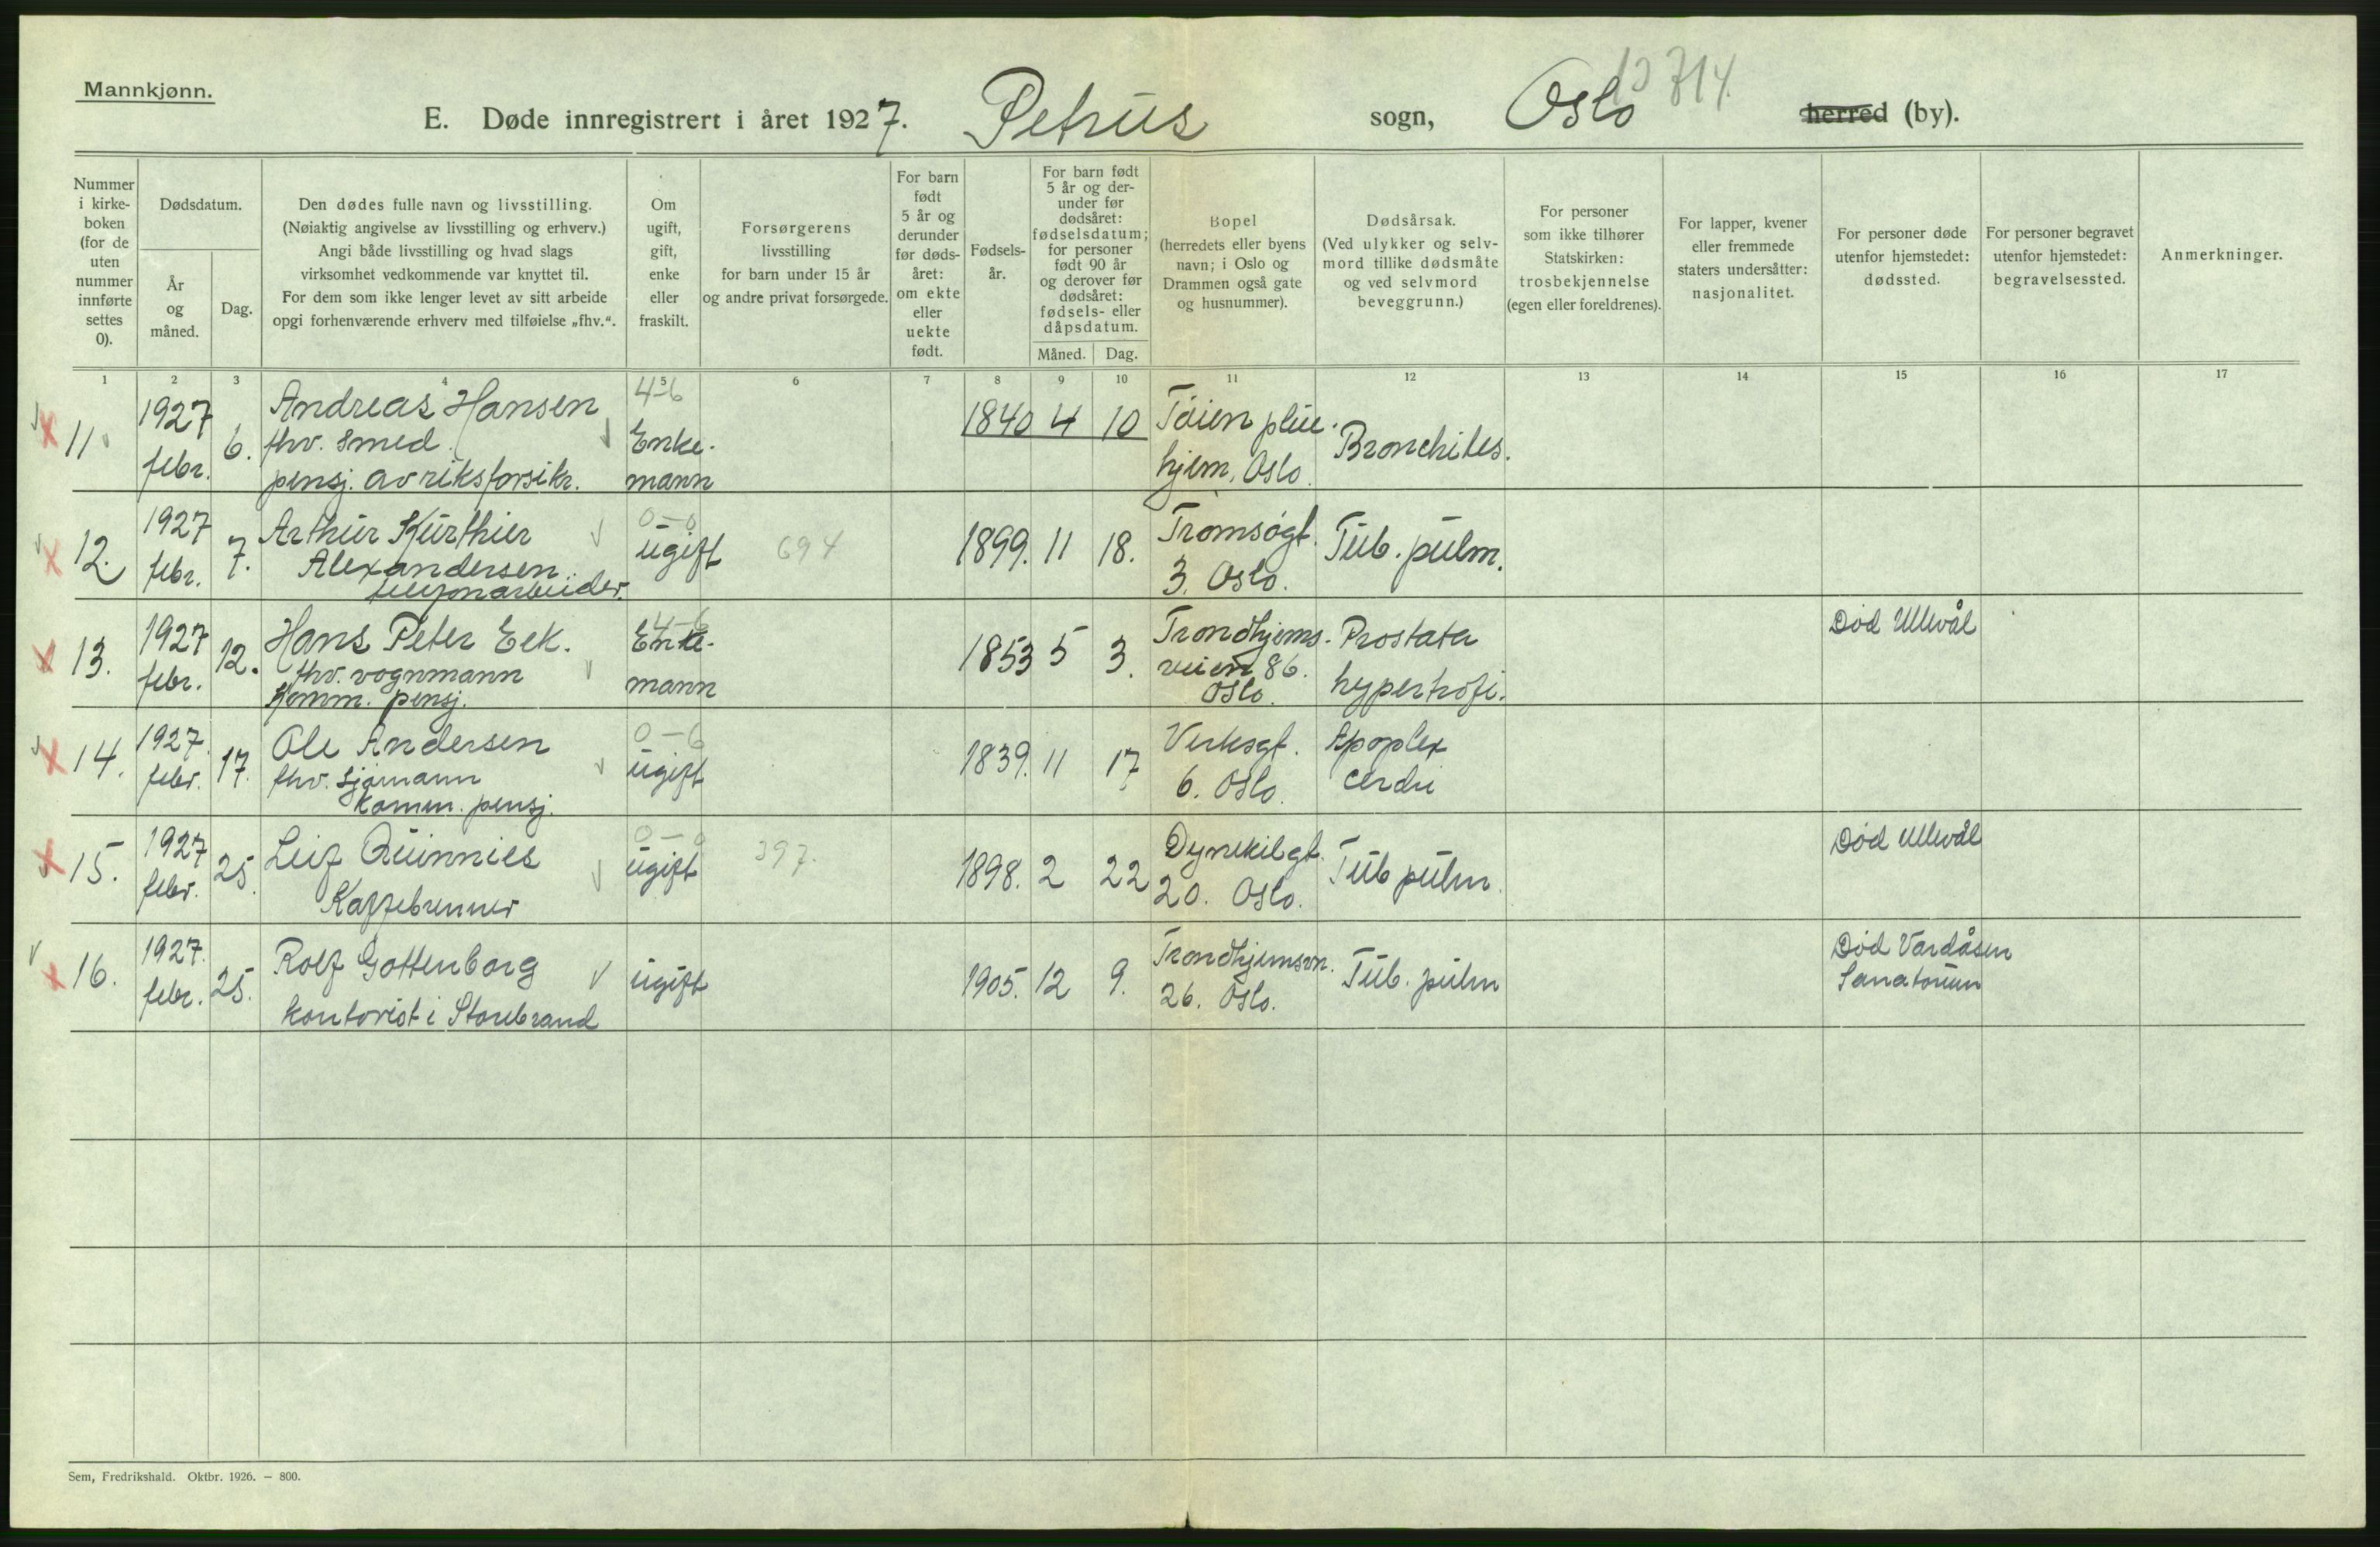 Mannkjønn.
13 714.
E. Døde innregistrert i året 1927. Petrus sogn, Oslo herred (by).
Nummer i kirke- boken (for de uten nummer innførte settes 0).
Dødsdatum.
År og måned.
Dag.
Den dødes fulle navn og livsstilling.
(Nøiaktig angivelse av livsstilling og erhverv.)
Angi både livsstilling og hvad slags
virksomhet vedkommende var knyttet til.
For dem som ikke lenger levet av sitt arbeide
opgi forhenværende erhverv med tilføielse „fhv.“.
Om ugift, gift, enke eller fraskilt.
Forsørgerens
livsstilling
for barn under 15 år
og andre privat forsørgede.
For barn født 5 år og derunder før døds- året: om ekte eller uekte født.
Fødsels- år.
For barn født 5 år og der- under før dødsåret: fødselsdatum; for personer født 90 år og derover før dødsåret: fødsels- eller dåpsdatum.
Måned. Dag.
Bopel
(herredets eller byens
navn; i Oslo og
Drammen også gate
og husnummer).
Dødsårsak.
(Ved ulykker og selv-
mord tillike dødsmåte
og ved selvmord
beveggrunn.)
For personer
som ikke tilhører
Statskirken:
trosbekjennelse
(egen eller foreldrenes).
For lapper, kvener
eller fremmede
staters undersåtter:
nasjonalitet.
For personer døde
utenfor hjemstedet:
dødssted.
For personer begravet
utenfor hjemstedet:
begravelsessted.
Anmerkninger.
1 2 3 4 5 6 7 8 9 10 11 12 13 14 15 16 17
11. 1927 febr. 6.
Andreas Hansen
fhv. smed
pensj. av riksforsikr.
4-6
Enke-
mann
1840 4 10
Tøien pleie-
hjem, Oslo.
Bronchites.
12. 1927 febr. 7.
Arthur Kurthier
Alexandersen
telefonarbeider.
0-0
ugift
694
1899. 11 18.
Tromsøgt.
3. Oslo.
Tub. pulm.
13. 1927 febr. 12.
Hans Peter Eek.
fhv. vognmann
Komm. pensj.
4-6
Enke-
mann
1853 5 3.
Trondhjems-
veien 86.
Oslo.
Prostata
hypertrofi.
Død Ullevål
14. 1927. febr. 17.
Ole Andersen
fhv. sjømann
Komm. pensj.
0-6
ugift
1839. 11 17
Verksgt.
6. Oslo.
Apoplex
cerebri
15. 1927 febr. 25.
Leif
Kaffebrenner
0-0
ugift
397.
1898. 2 22
Dynekilgt.
20. Oslo.
Tub pulm.
Død Ullevål
16. 1927. febr. 25.
Rolf Gottenborg
kontorist i Storebrand
ugift
1905. 12 9.
Trondhjemsvn.
26. Oslo.
Tub. pulm
Død Vardåsen
Sanatorium
Sem, Fredrikshald. Oktbr. 1926. — 800.